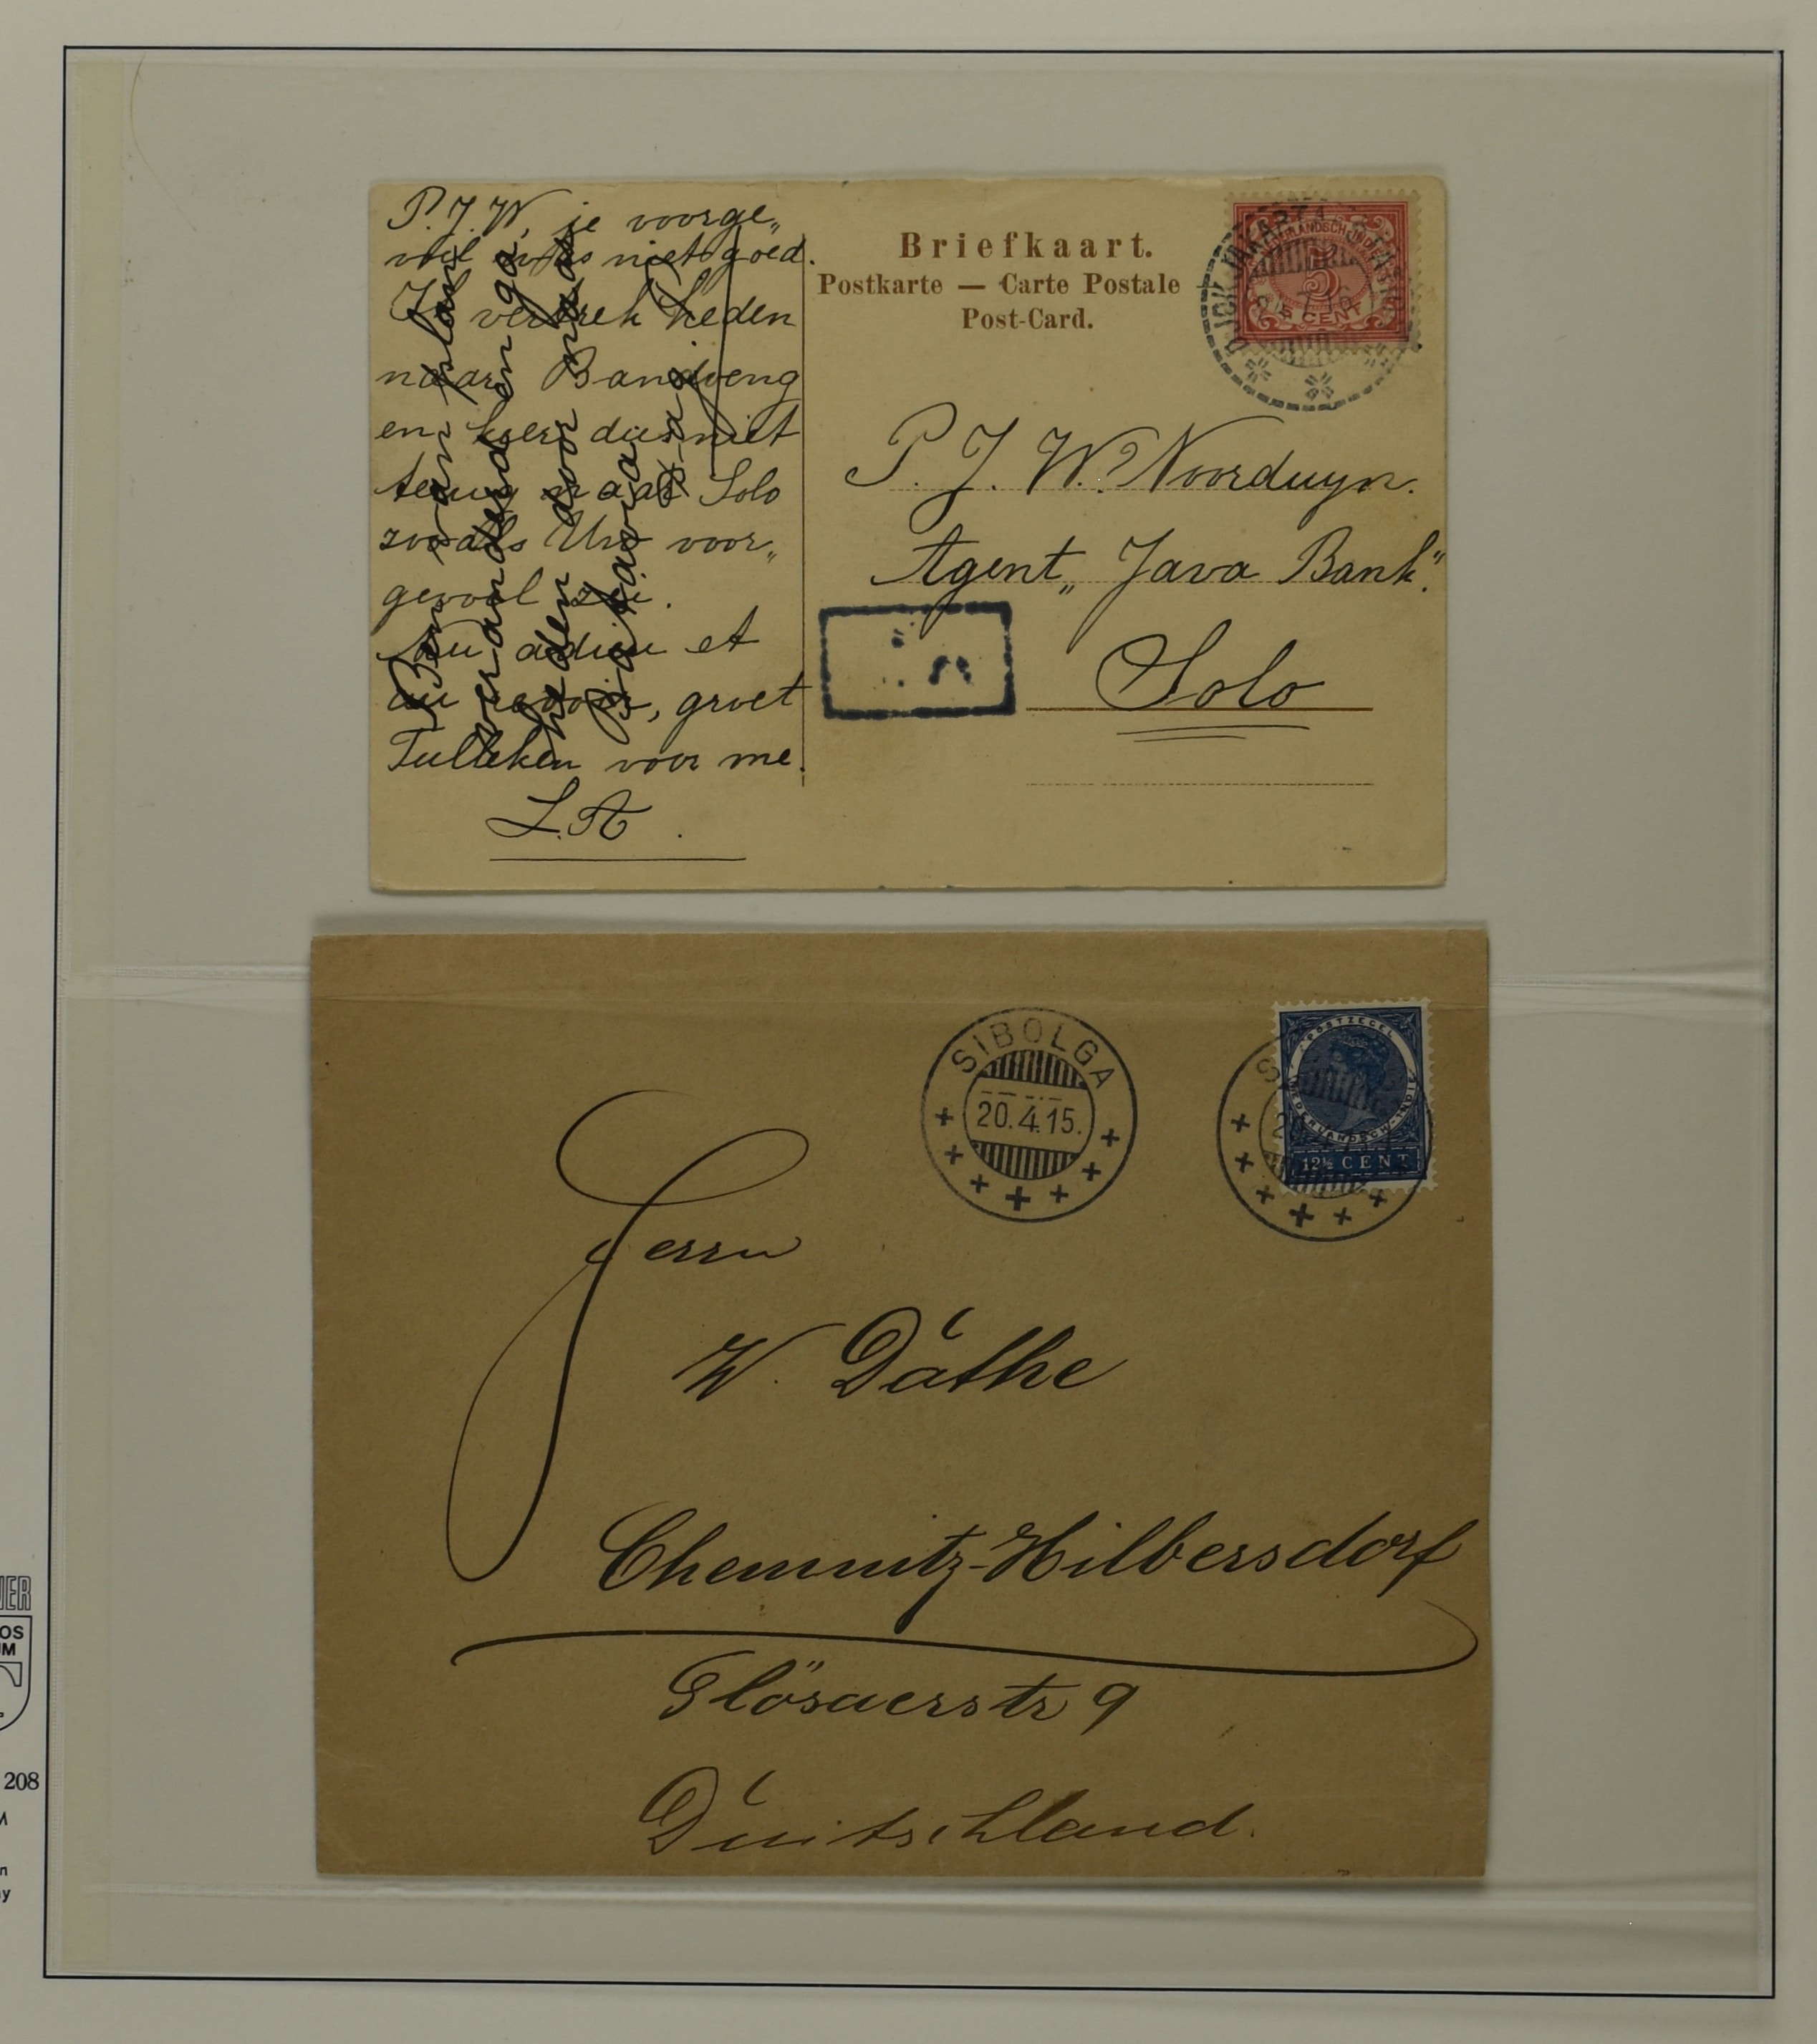 P. J. W, je voorge„
voel was niet goed.
Ik vertrek heden
naar Bandoeng
en keer dus niet
terug naar Solo
zooals Uw voor„
gevoel zei.
Nu adieu et
au revoir, groet
Tulleken voor me.
L. A.
Mijn plan
veranderd en ga
heden door naar
Batavia
Briefkaart.
Postkarte — Carte Postale
Post-Card.
NEDERLANDSCH-INDIE
5
5 CENT
P. J. W. Noorduyn.
Agent „Java Bank".
Solo
SIBOLGA
20.4.15.
POSTZEGEL
NEDERLANDSCH-INDIE
12½ CENT
Herrn
W. Däthe
Chemnitz-Hilbersdorf
Glösaerstr 9
Duitschland.
208